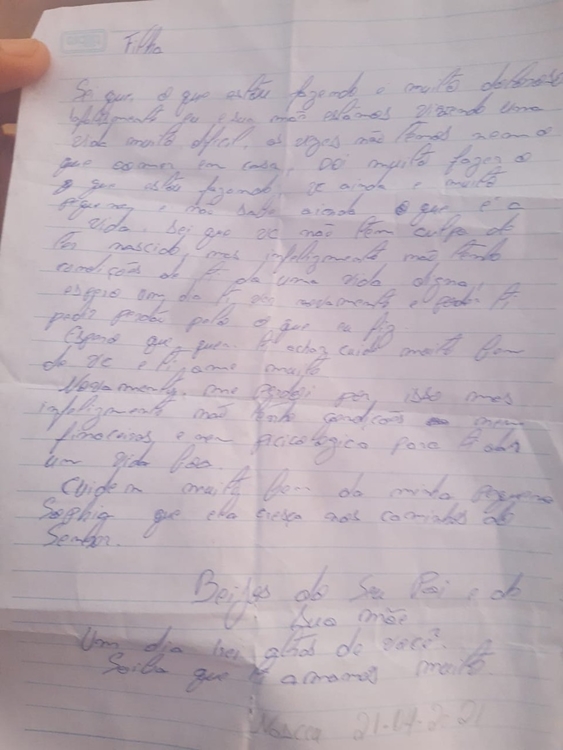 Filha
Se que o que estou fazendo e muito doloroso
infelizmente eu e sua mãe estamos vivendo uma
vida muito dificil, as vezes não temos nem o
que comer em casa, doi muito fazer o
o que estou fazendo, vc ainda e muito
pequena e não sabe ainda o que é a
vida. Sei que vc não tem culpa de
ter nascido, mas infelizmente não tenho
condições de t da uma vida digna,
espero um dia ti ver novamente e poder ti
pedir perdão pelo o que eu fiz
Espero que quem ti achar cuide muito bem
de vc e ti ame muito
Novamente, me perdoi por isso mas
infelizmente não tenho condições nem
financeiras e nem picicologico para ti dar
um vida boa.
Cuidem muito bem da minha pequena
Sophia que ela cresça nos caminhos do
Senhor.
Beijos do Seu Pai e da
Sua mãe
Um dia irei atras de você.
Saiba que ti amamos muito.